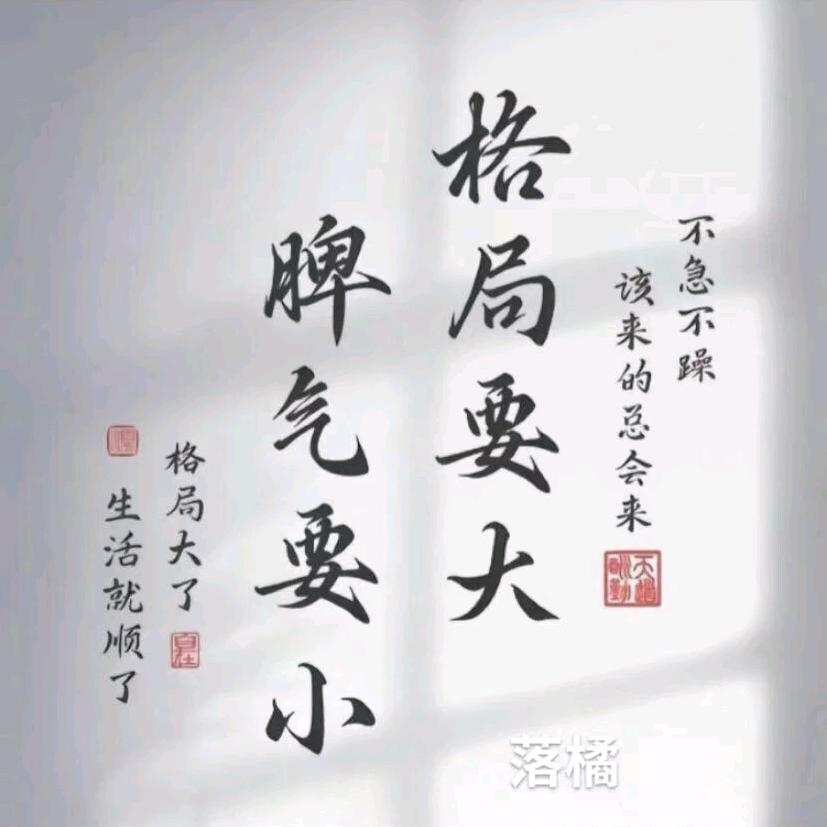 不急不躁
该来的总会来
天道酬勤
格局要大
脾气要小
格局大了
自在
生活就顺了
落橘